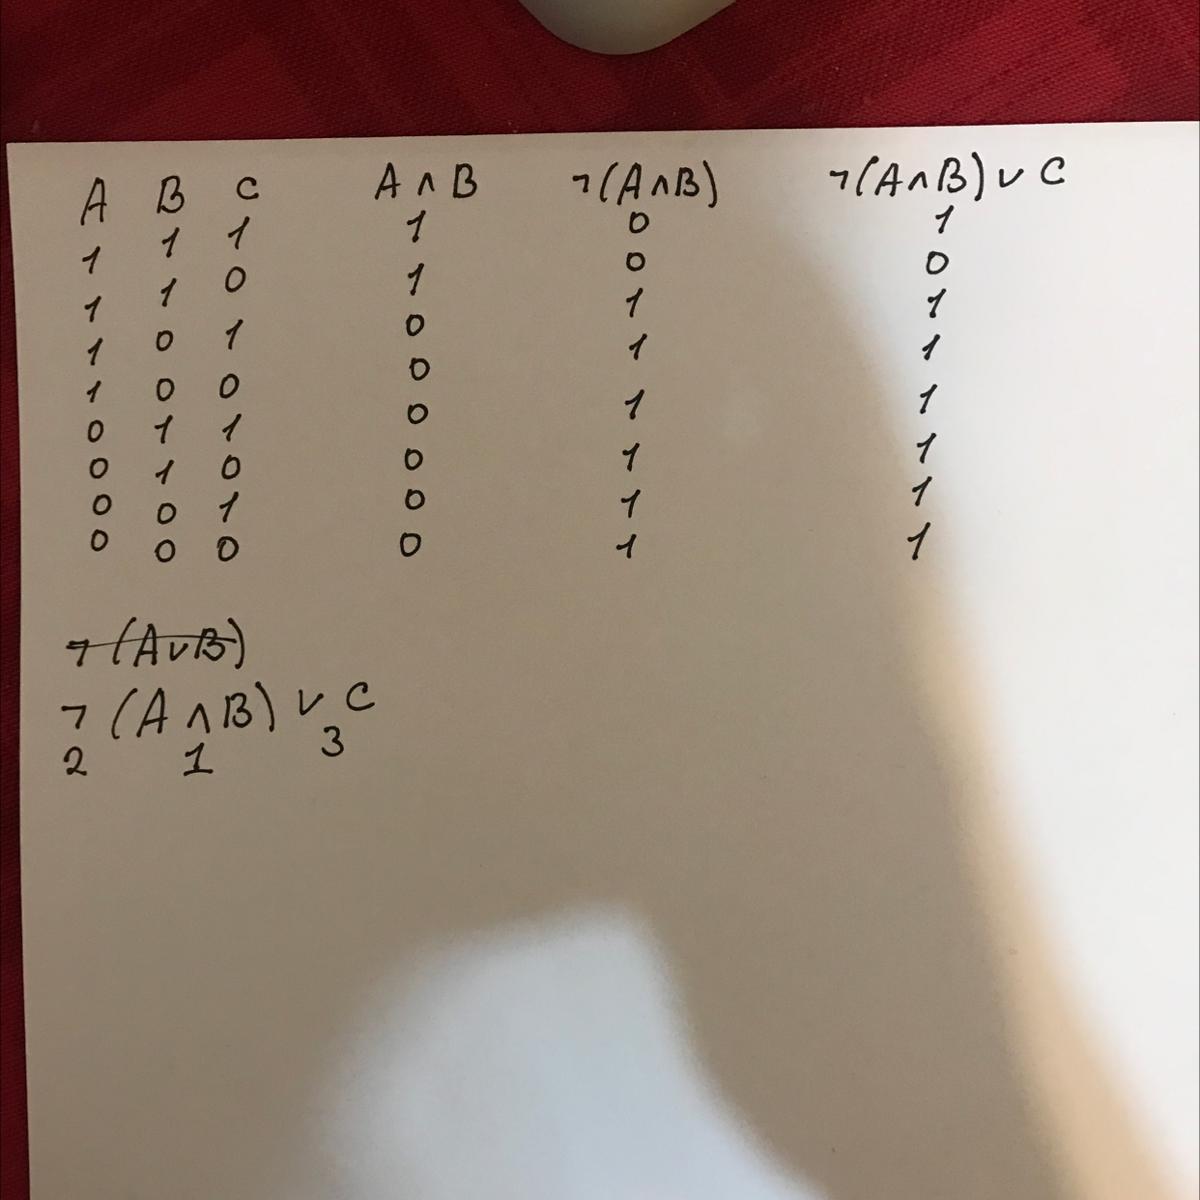 A B C A ∧ B ¬(A∧B) ¬(A∧B) ∨ C
1 1 1 1 0 1
1 1 0 1 0 0
1 0 1 0 1 1
1 0 0 0 1 1
0 1 1 0 1 1
0 1 0 0 1 1
0 0 1 0 1 1
0 0 0 0 1 1
¬(A∨B)
¬(A∧B) ∨ C
2 1 3